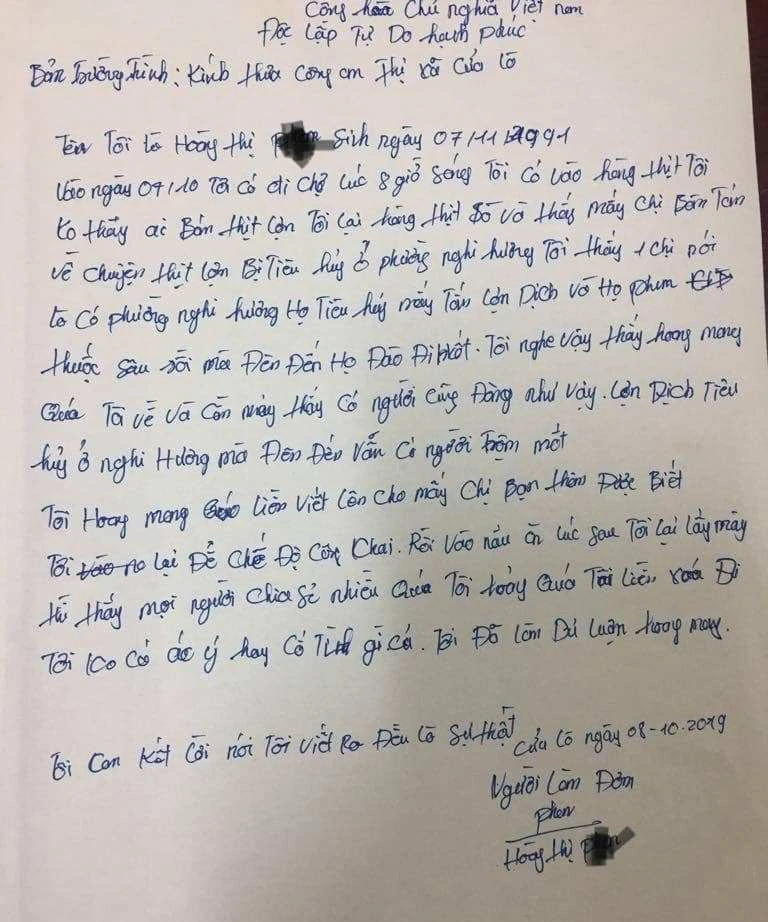 Cộng hòa Chủ nghĩa Việt nam
Độc lập Tự Do hạnh phúc
Bản Trường Trình: Kính thưa công an Thị xã Cửa lò
Tên Tôi là Hoàng thị Sinh ngày 07/11/1991
Vào ngày 07/10 Tôi có đi chợ lúc 8 giờ sáng Tôi có vào hàng thịt Tôi
ko thấy ai Bán thịt lợn Tôi lại hàng thịt Bò và thấy mấy chị Bán Tán
về chuyện thịt lợn Bị Tiêu hủy ở phường nghi hương Tôi thấy 1 chị nói
là Có phường nghi hương Họ Tiêu hủy mấy Tấn lợn Dịch Và Họ phun
thuốc sâu rồi mà Đêm Đến Họ Đào Đi hết. Tôi nghe Vậy thấy hoang mang
Quá Tôi về Và Cầm máy thấy Có người Cũng Đăng như Vậy. Lợn Dịch Tiêu
hủy ở nghi Hương mà Đêm Đến Vẫn Có người trộm mất
Tôi Hoang mang liền Viết lên cho mấy Chị Bạn thân Được Biết
Tôi lại Để Chế Độ Công Khai. Rồi Vào nấu ăn lúc sau Tôi lại lấy máy
thì thấy mọi người Chia Sẻ nhiều Quá Tôi hoảng Quá Tôi liền xoá Đi
Tôi ko Có ác ý hay Cố Tình gì cả. Tôi Đã làm Dư luận hoang mang.
Tôi Cam Kết lời nói Tôi Viết Ra Đều là Sự thật
Cửa lò ngày 08-10.2019
Người làm Đơn
phan
Hoàng thị